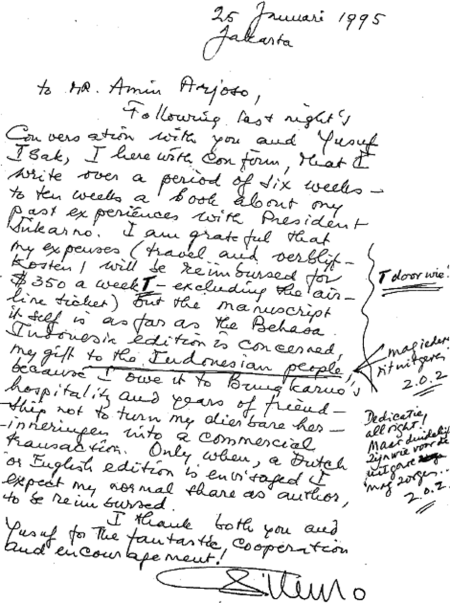 25 Januari 1995
Jakarta
to MR. Amin Arjoso,
Following last night's
Conversation with you and Yusuf
Isak, I herewith conform, that I
write over a period of six weeks -
to ten weeks a book about my
past experiences with President
Sukarno. I am grateful that
my expenses (travel and verblijf-
kosten) will be reimbursed for
$350 a week T - excluding the air-
line ticket) but the manuscript
itself is as far as the Behasa
Indonesia edition is concerned,
my gift to the Indonesian people,
because I owe it to Bung Karno's
hospitality and years of friend-
ship not to turn my dierbare her-
inneringen into a commercial
transaction. Only when, a Dutch
or English edition is envisaged I
expect my normal share as author,
to be reimbursed.
I thank both you and
Yusuf for the fantastic cooperation
and encouragement!
T door wie?
mag ieder
uitgeven
z.o.z
Dedicatie,
all right.
Maar duidelijk
zijn wie voor de
uitgave
mag zorgen...
z.o.z.